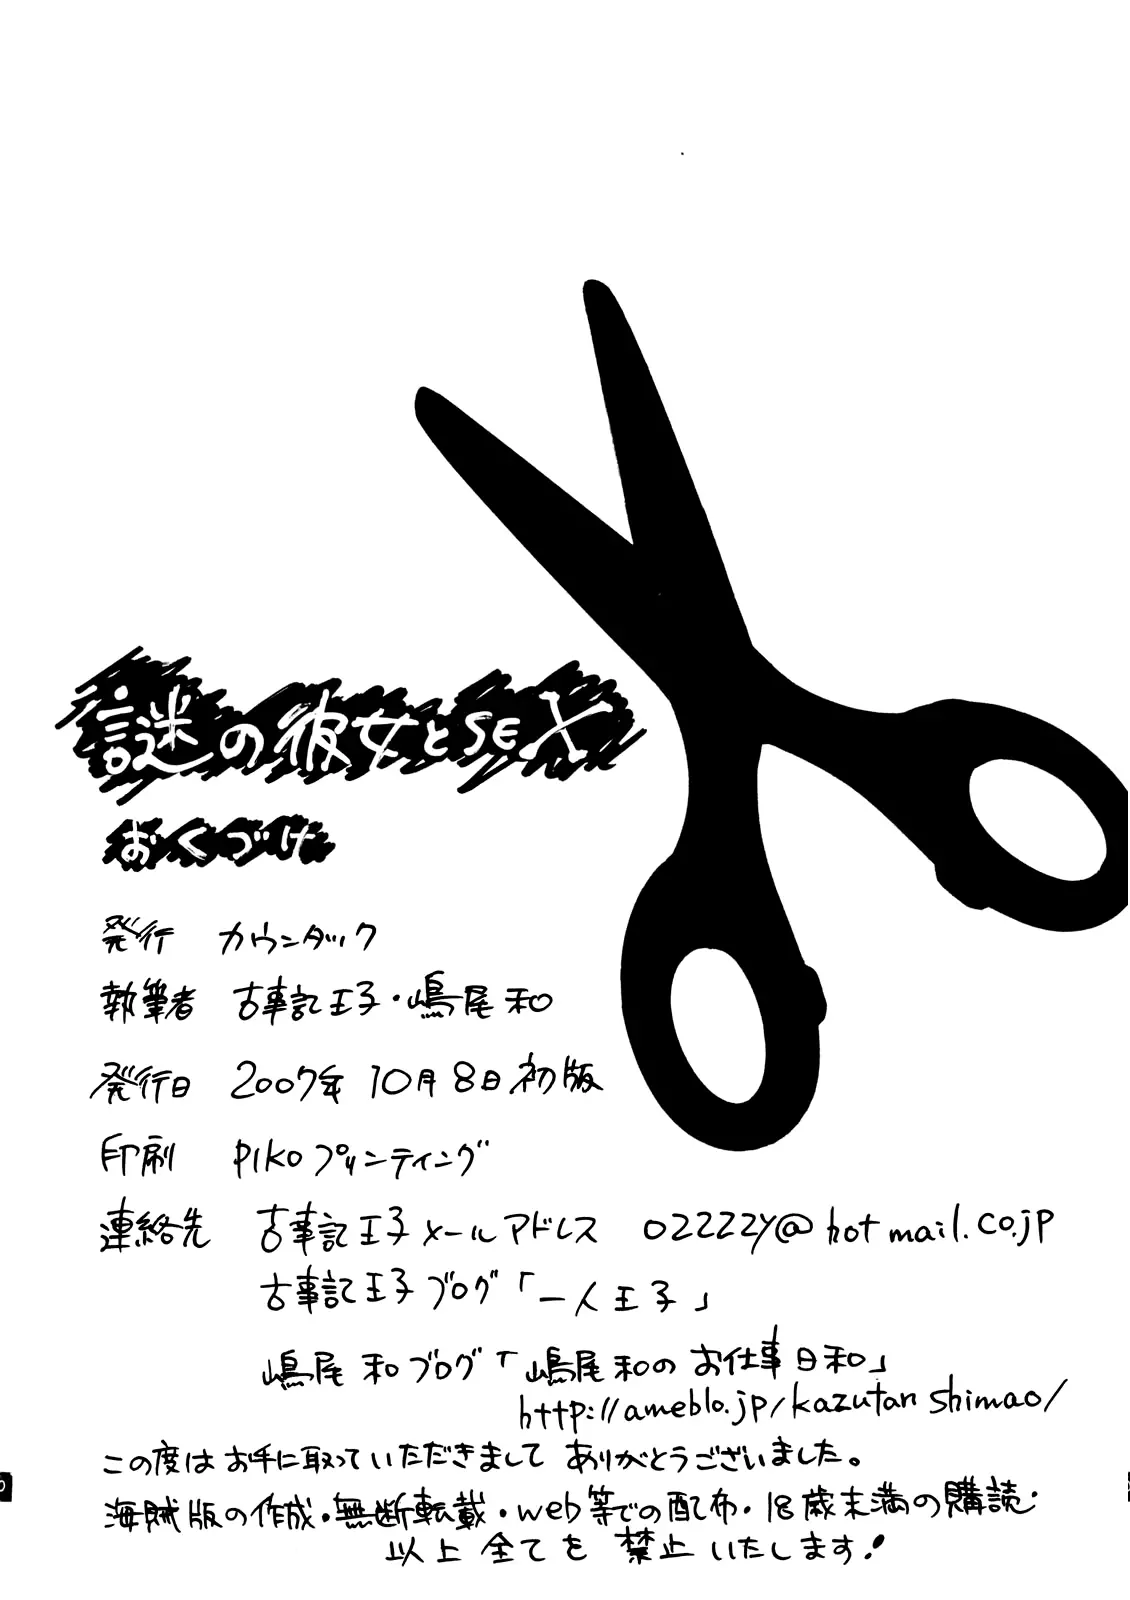 謎の彼女とSEX
おくづけ
発行 カウンタック
執筆者 古事記王子・嶋尾 和
発行日 2007年 10月 8日 初版
印刷 PIKOプリンティング
連絡先 古事記王子メールアドレス 02222y@hotmail.co.jp
古事記王子ブログ「一人王子」
嶋尾 和ブログ「嶋尾和のお仕事日和」
http://ameblo.jp/kazutanshimao/
この度はお手に取っていただきまして ありがとうございました。
海賊版の作成・無断転載・web等での配布・18歳未満の購読・
以上 全てを 禁止いたします!